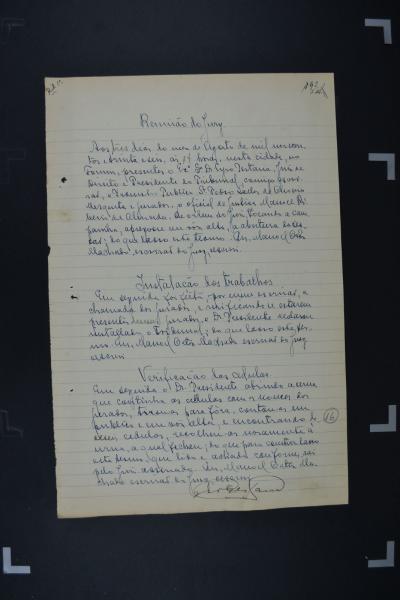 Reunião do Jury
Aos tres dias do mez de Agosto de mil novecen
tos e trinta e seis, ás 14 horas, nesta cidade, no
Forum, presentes o
Direito e Presidente do Tribunal, comigo escri
vão, o Promotor Publico Dr. Pedro
Mesquita e jurados, o oficial de justiça Manoel Ri
beiro de Almeida. De ordem do Juiz tocando a cam
painha, apregoou em voz alta, a abertura da ses
são; do que lavro este termo. Eu, Manoel
Machado, escrivão do Jury, escrevi.
Instalação dos trabalhos
Em seguida foi feita, por mim escrivão, a
chamada dos jurados, e verificando-se estarem
presentes jurados, o Dr. Presidente declarou
installado o tribunal; do que lavro este ter
mo. Eu, Manoel Machado escrivão do Jury
escrevi
Verificação das cedulas
Em seguida o Dr. Presidente abrindo a urna
que continha as cedulas com os nomes dos
jurados, tirou-as para fóra, contou-as em
publico e em voz alta, e encontrando
cedulas, recolheu-as novamente á
urna, a qual fechou; do que para constar lavro
este termo, que lido e achado conforme, vai
pelo Juiz assignado. Eu, Manoel Ma
chado escrivão do Jury, escrevi
16